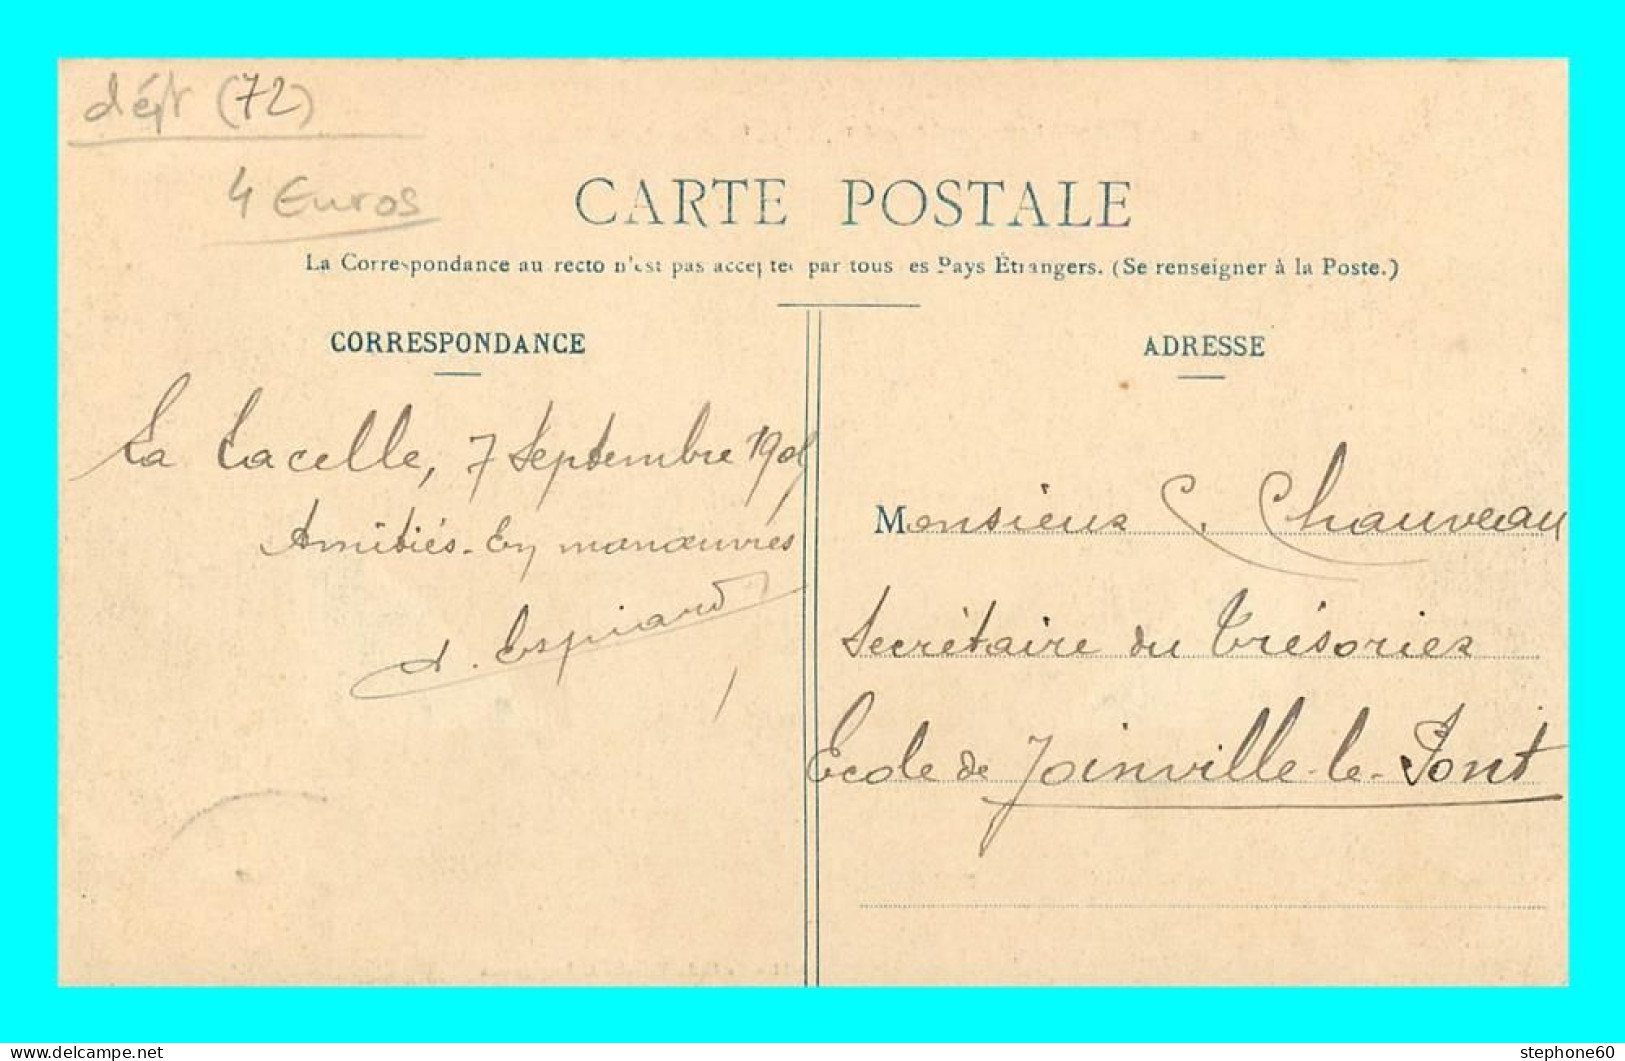 dépt (72)
4 Euros
CARTE POSTALE
La Correspondance au recto n'est pas acceptée par tous les Pays Étrangers. (Se renseigner à la Poste.)
CORRESPONDANCE
La Lacelle, 7 Septembre
Amitiés - En manœuvres
d. Espinard
ADRESSE
Monsieur C. Chauveau
Secrétaire du Trésorier
Ecole de Joinville-le-Pont
stephone60